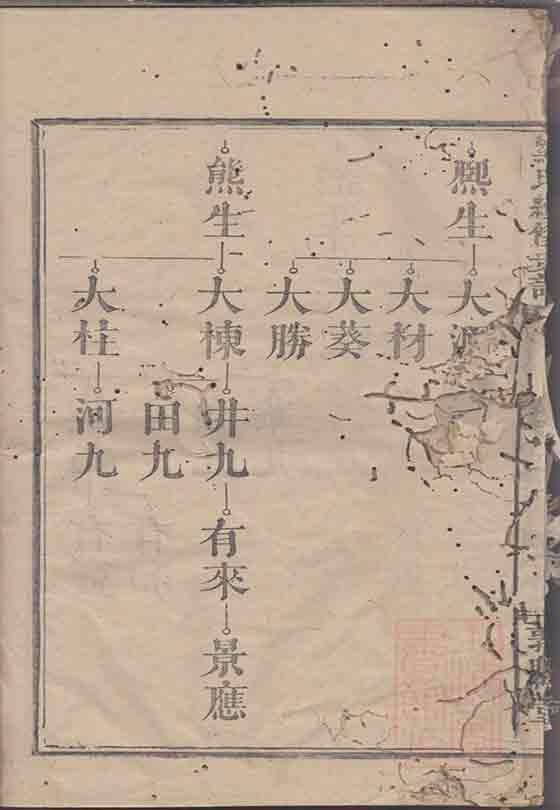 熙生
大
大材
大葵
大勝
熊生
大棟
井九
有來
景應
田九
大柱
河九